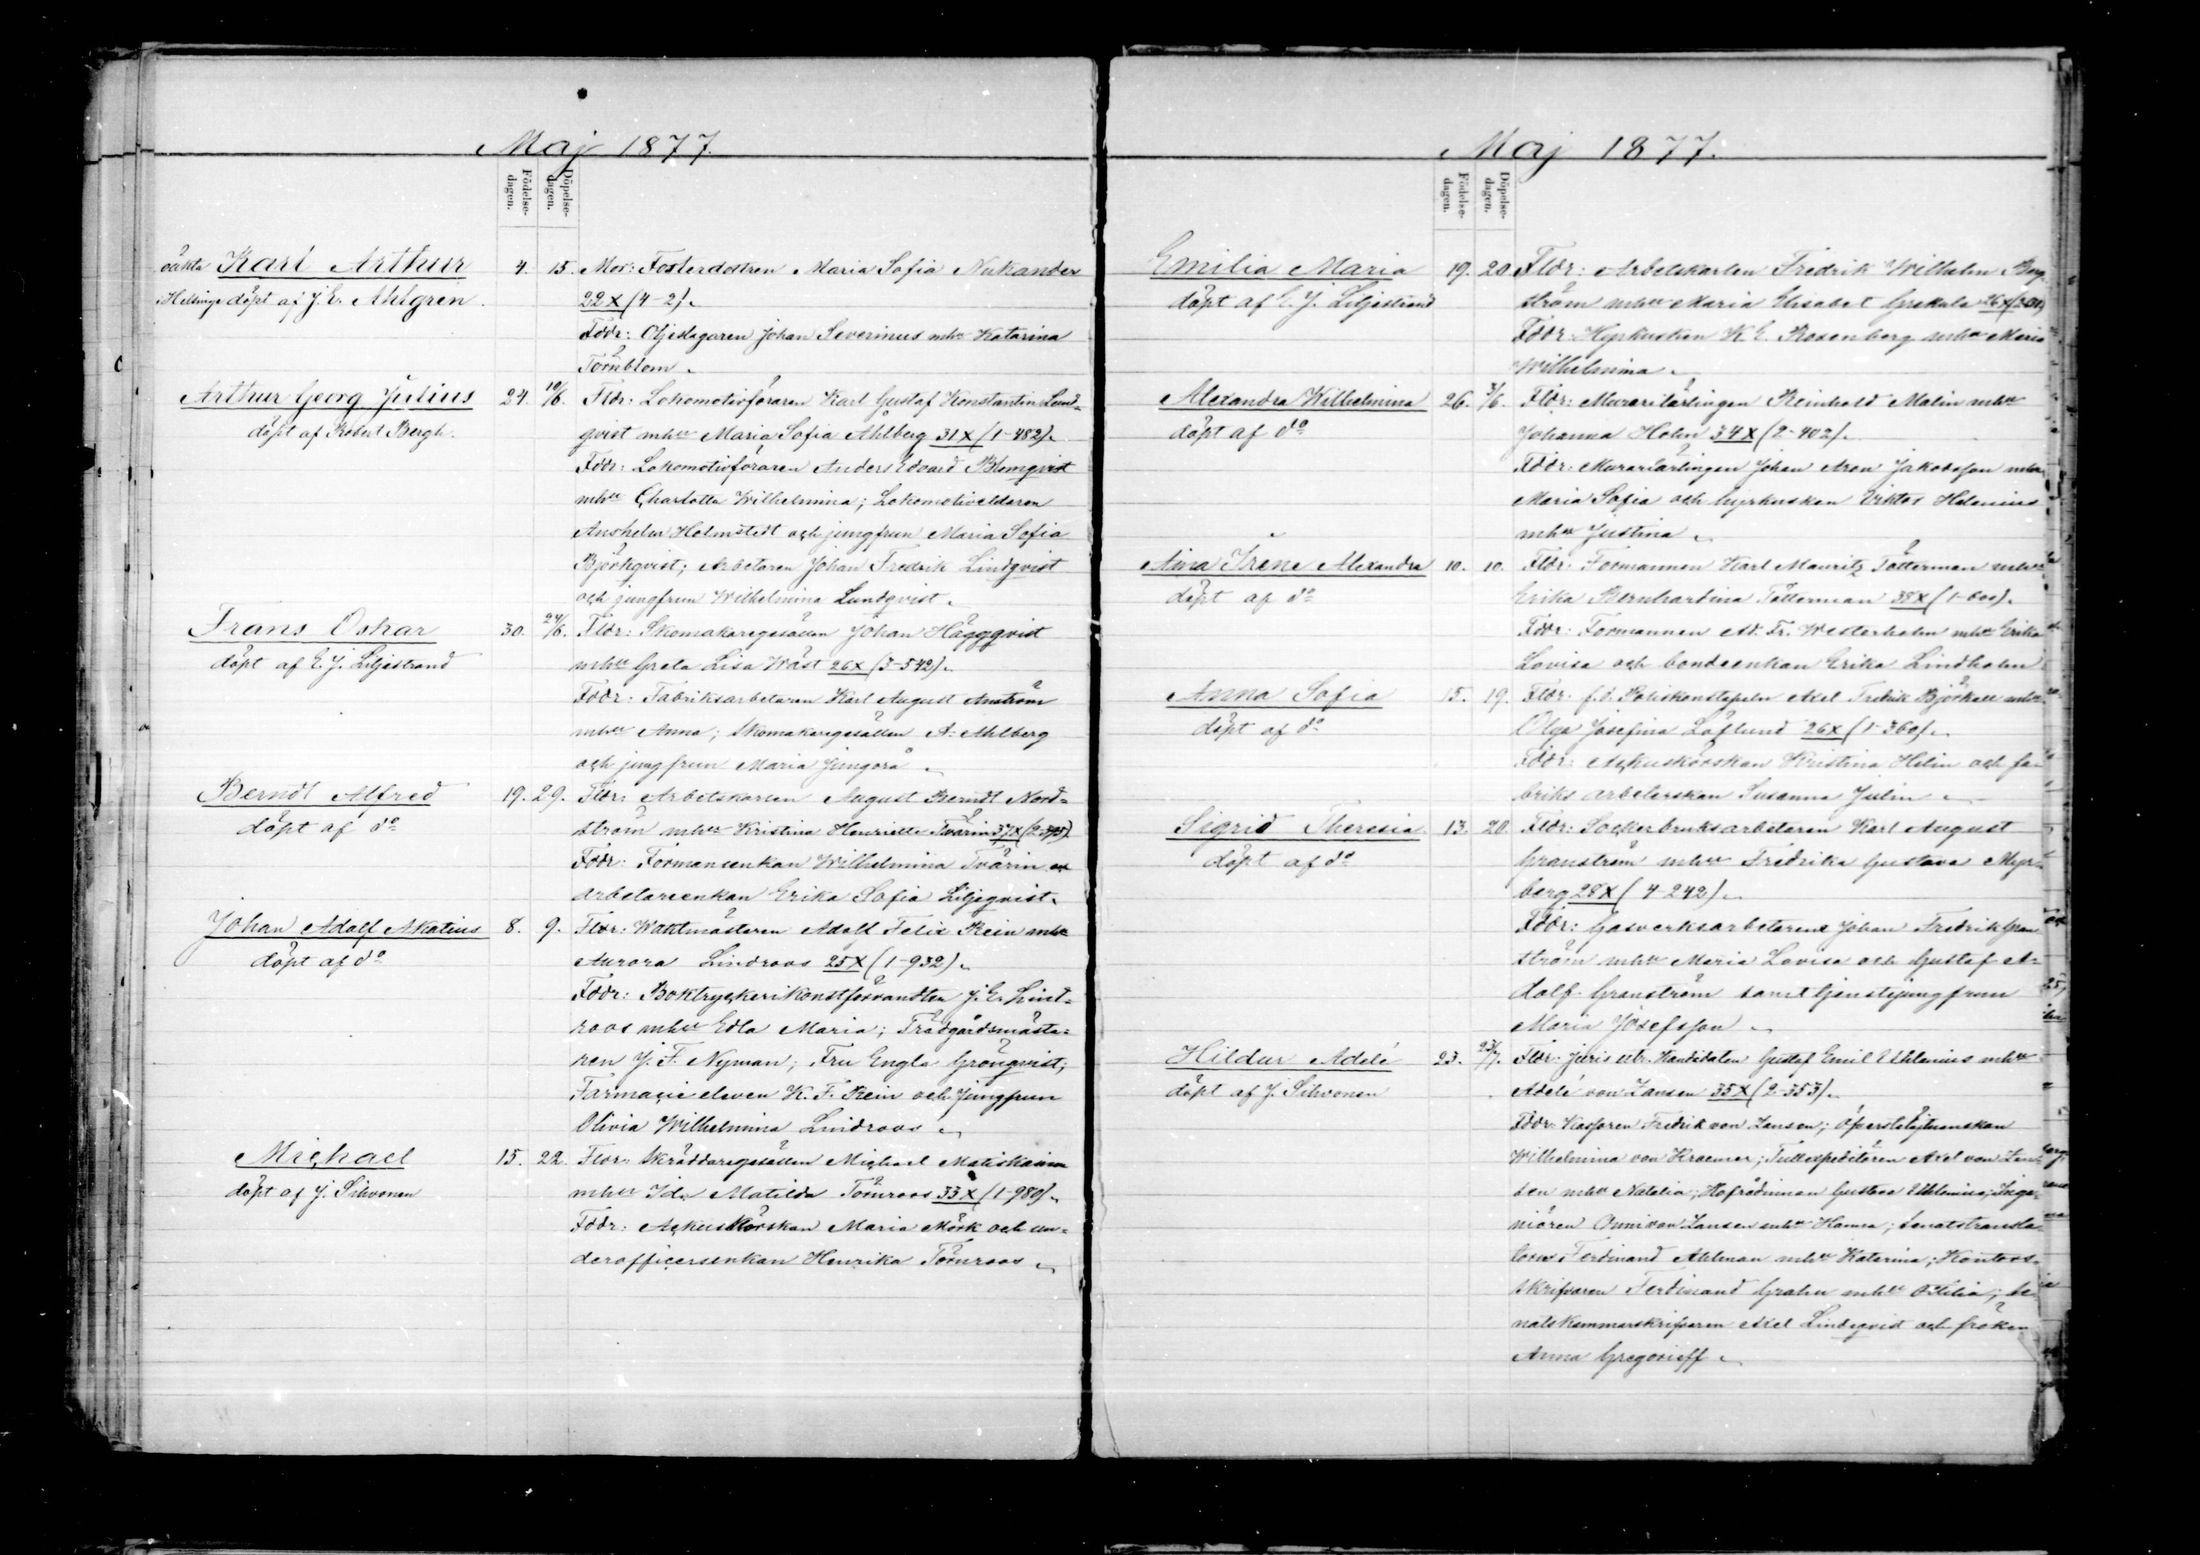 Maj 1877.
Födelse-
dagen.
Döpelse-
dagen.
oäkta Karl Arthur 4. 15. Mor: Fosterdottren Maria Sofia Nukander
Helsinge döpt af J. E. Ahlgren. 22 X (4-2).
Fddr: Oljeslagaren Johan Severinus mhu Katarina
Törnblom.
Arthur Georg Julius 24. 10/6. Fldr: Lokomotivföraren Karl Gustaf Konstantin Lund-
döpt af Robert Bergh. qvist mhu Maria Sofia Ahlberg 31 X (1-482).
Fddr: Lokomotivföraren Anders Edvard Blomqvist
mhu Charlotta Wilhelmina; Lokomotiveldaren
Anshelm Holmstedt och jungfrun Maria Sofia
Björkqvist; Arbetaren Johan Fredrik Lindqvist
och jungfrun Wilhelmina Lundqvist.
Frans Oskar 30. 24/6. Fldr: Skomakaregesällen Johan Häggqvist
döpt af E. J. Liljestrand mhu Greta Lisa Wäst 26 X (3-542).
Fddr: Fabriksarbetaren Karl August Anström
mhu Anna; skomakaregesällen A. Ahlberg
och jungfrun Maria Jungarå.
Berndt Alfred 19. 29. Fldr: Arbetskarlen August Berndt Nord-
döpt af do ström mhu Kristina Henriette Tvärin 37 X
Fddr: Formansenkan Wilhelmina Tvärin o
arbetareenkan Erika Sofia Liljeqvist.
Johan Adolf Akatius 8. 9. Fldr: Waktmästaren Adolf Felix Rein mhu
döpt af do Aurora Lindroos 25 X (1-932).
Fddr: Boktryckerikonstförvandten J. E. Lind-
roos mhu Edla Maria; Trädgårdsmästa-
ren J. F. Nyman; Fru Engla Grönqvist;
Farmacie eleven K. F. Rein och Jungfrun
Olivia Wilhelmina Lindroos.
Michael 15. 22. Fldr: Skräddaregesällen Michael Matiskainen
döpt af J. Sihvonen mhu Ida Matilda Törnroos 33 X (1-980).
Fddr: Ackuskörskan Maria Mörk och un-
derofficersenkan Henrika Törnroos.
Maj 1877.
Födelse-
dagen.
Döpelse-
dagen.
Emilia Maria 19. 20. Fldr: Arbetskarlen Fredrik Wilhelm Berg-
döpt af E. J. Liljestrand ström mhu Maria Elisabet Grekula 26 X
Fddr: Hyrkusken K. E. Rosenberg mhu Maria
Wilhelmina.
Alexandra Wilhelmina 26. 3/6. Fldr: Murarelärlingen Reinhold Malin mhu
döpt af do Johanna Holm 34 X (2-402).
Fddr: Murarelärlingen Johan Aron Jakobsson mhu
Maria Sofia och hyrkusken Viktor Helenius
mhu Justina.
Aina Irene Alexandra 10. 10. Fldr: Formannen Karl Mauritz Tötterman mhu
döpt af do Erika Bernhardina Tötterman 38 X (1-600).
Fddr: Formannen Ad. Fr. Westerholm mhu Erika
Lovisa och bondeenkan Erika Lindholm
Anna Sofia 15. 19. Fldr: f.d. Poliskonstapeln Axel Fredrik Björkell mhu
döpt af do Olga Josefina Löflund 26 X (1-360).
Fddr: Ackuskörskan Kristina Helin och fa-
briks arbeterskan Susanna Julin.
Sigrid Theresia 13. 20. Fldr: Sockerbruksarbetaren Karl August
döpt af do Granström mhu Fredrika Gustava Myr-
berg 28 X (4-242).
Fddr: Gasverksarbetarene Johan Fredrik Gran
ström mhu Maria Lovisa och Gustaf A-
dolf Granström samt tjenstejungfrun
Maria Josefsson.
Hildur Adelé 23. 23/7. Fldr: Juris utr. Kandidaten Gustaf Emil Uhlenius mhu
döpt af J. Sihvonen Adelé von Zansen 35 X (2-353).
Fddr: Kassören Fredrik von Zansen; Öfverstelöjtnanskan
Wilhelmina von Kraemer; Tullexpeditören Axel von Zan-
sen mhu Natalia; Hofrådinnan Gustava Uhlenius; Inge-
niören Onni von Zansen mhu Hanna; Senatstransla-
torn Ferdinand Ahlman mhu Katarina; Kontors-
skrifvaren Ferdinand Grahn mhu Otilia; se-
natskammarskrifvaren Axel Lindqvist och fröken
Anna Gregorieff.